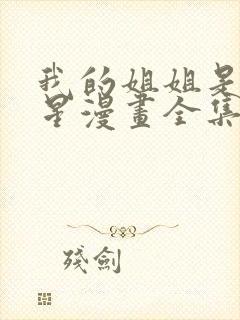 我的姐姐是
星漫畫全集
殘劍